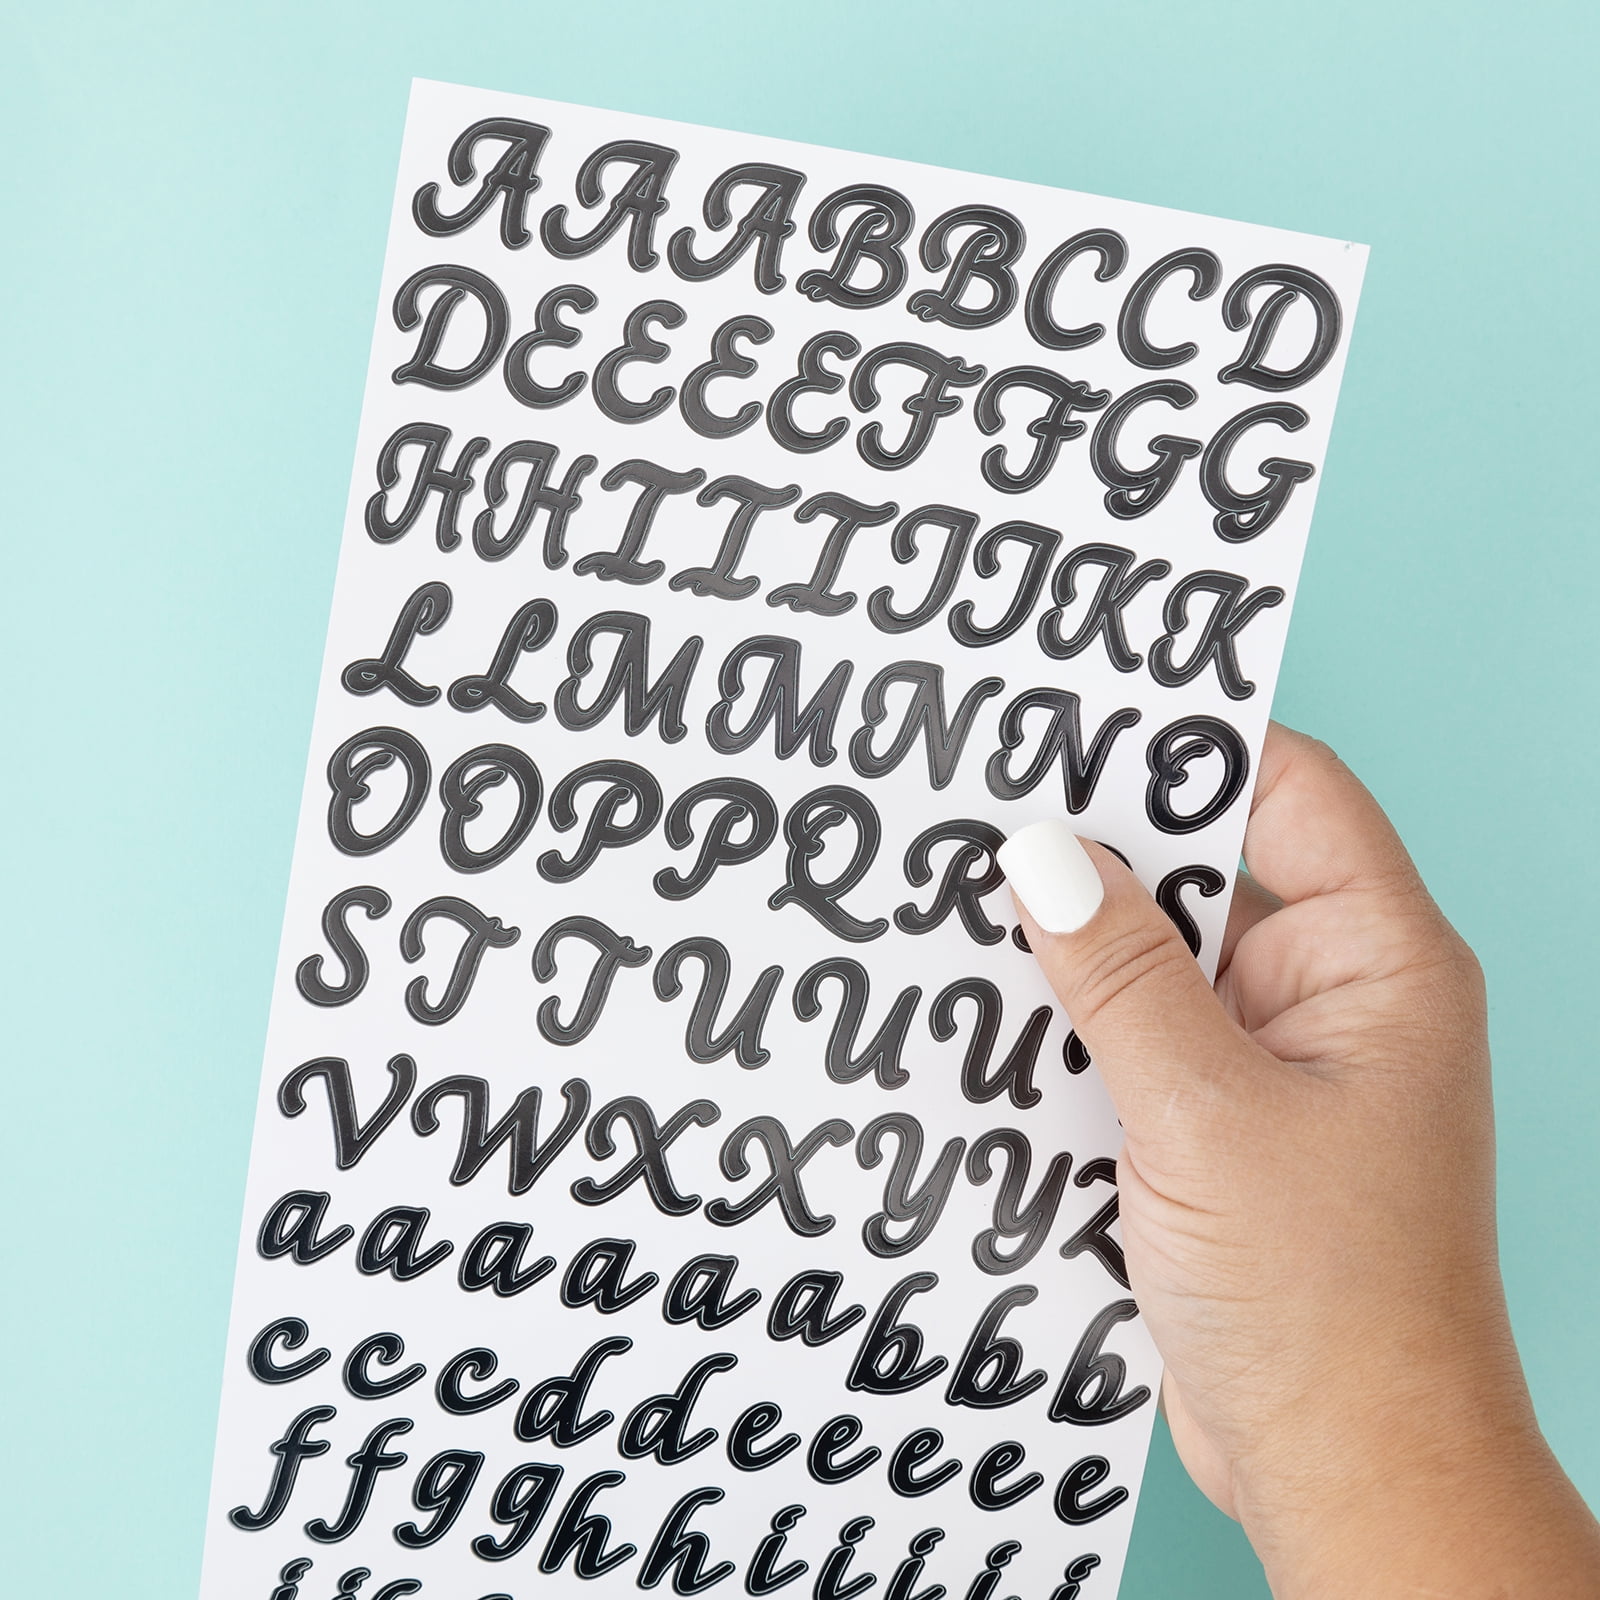 AAABBCCD
DEEEEFFGG
HHIIIJJKK
LLMMNNO
OOPPQRS
STTUUU
VWXXYYZ
aaaaaabbb
cccddeeeee
ffgghhiiiii